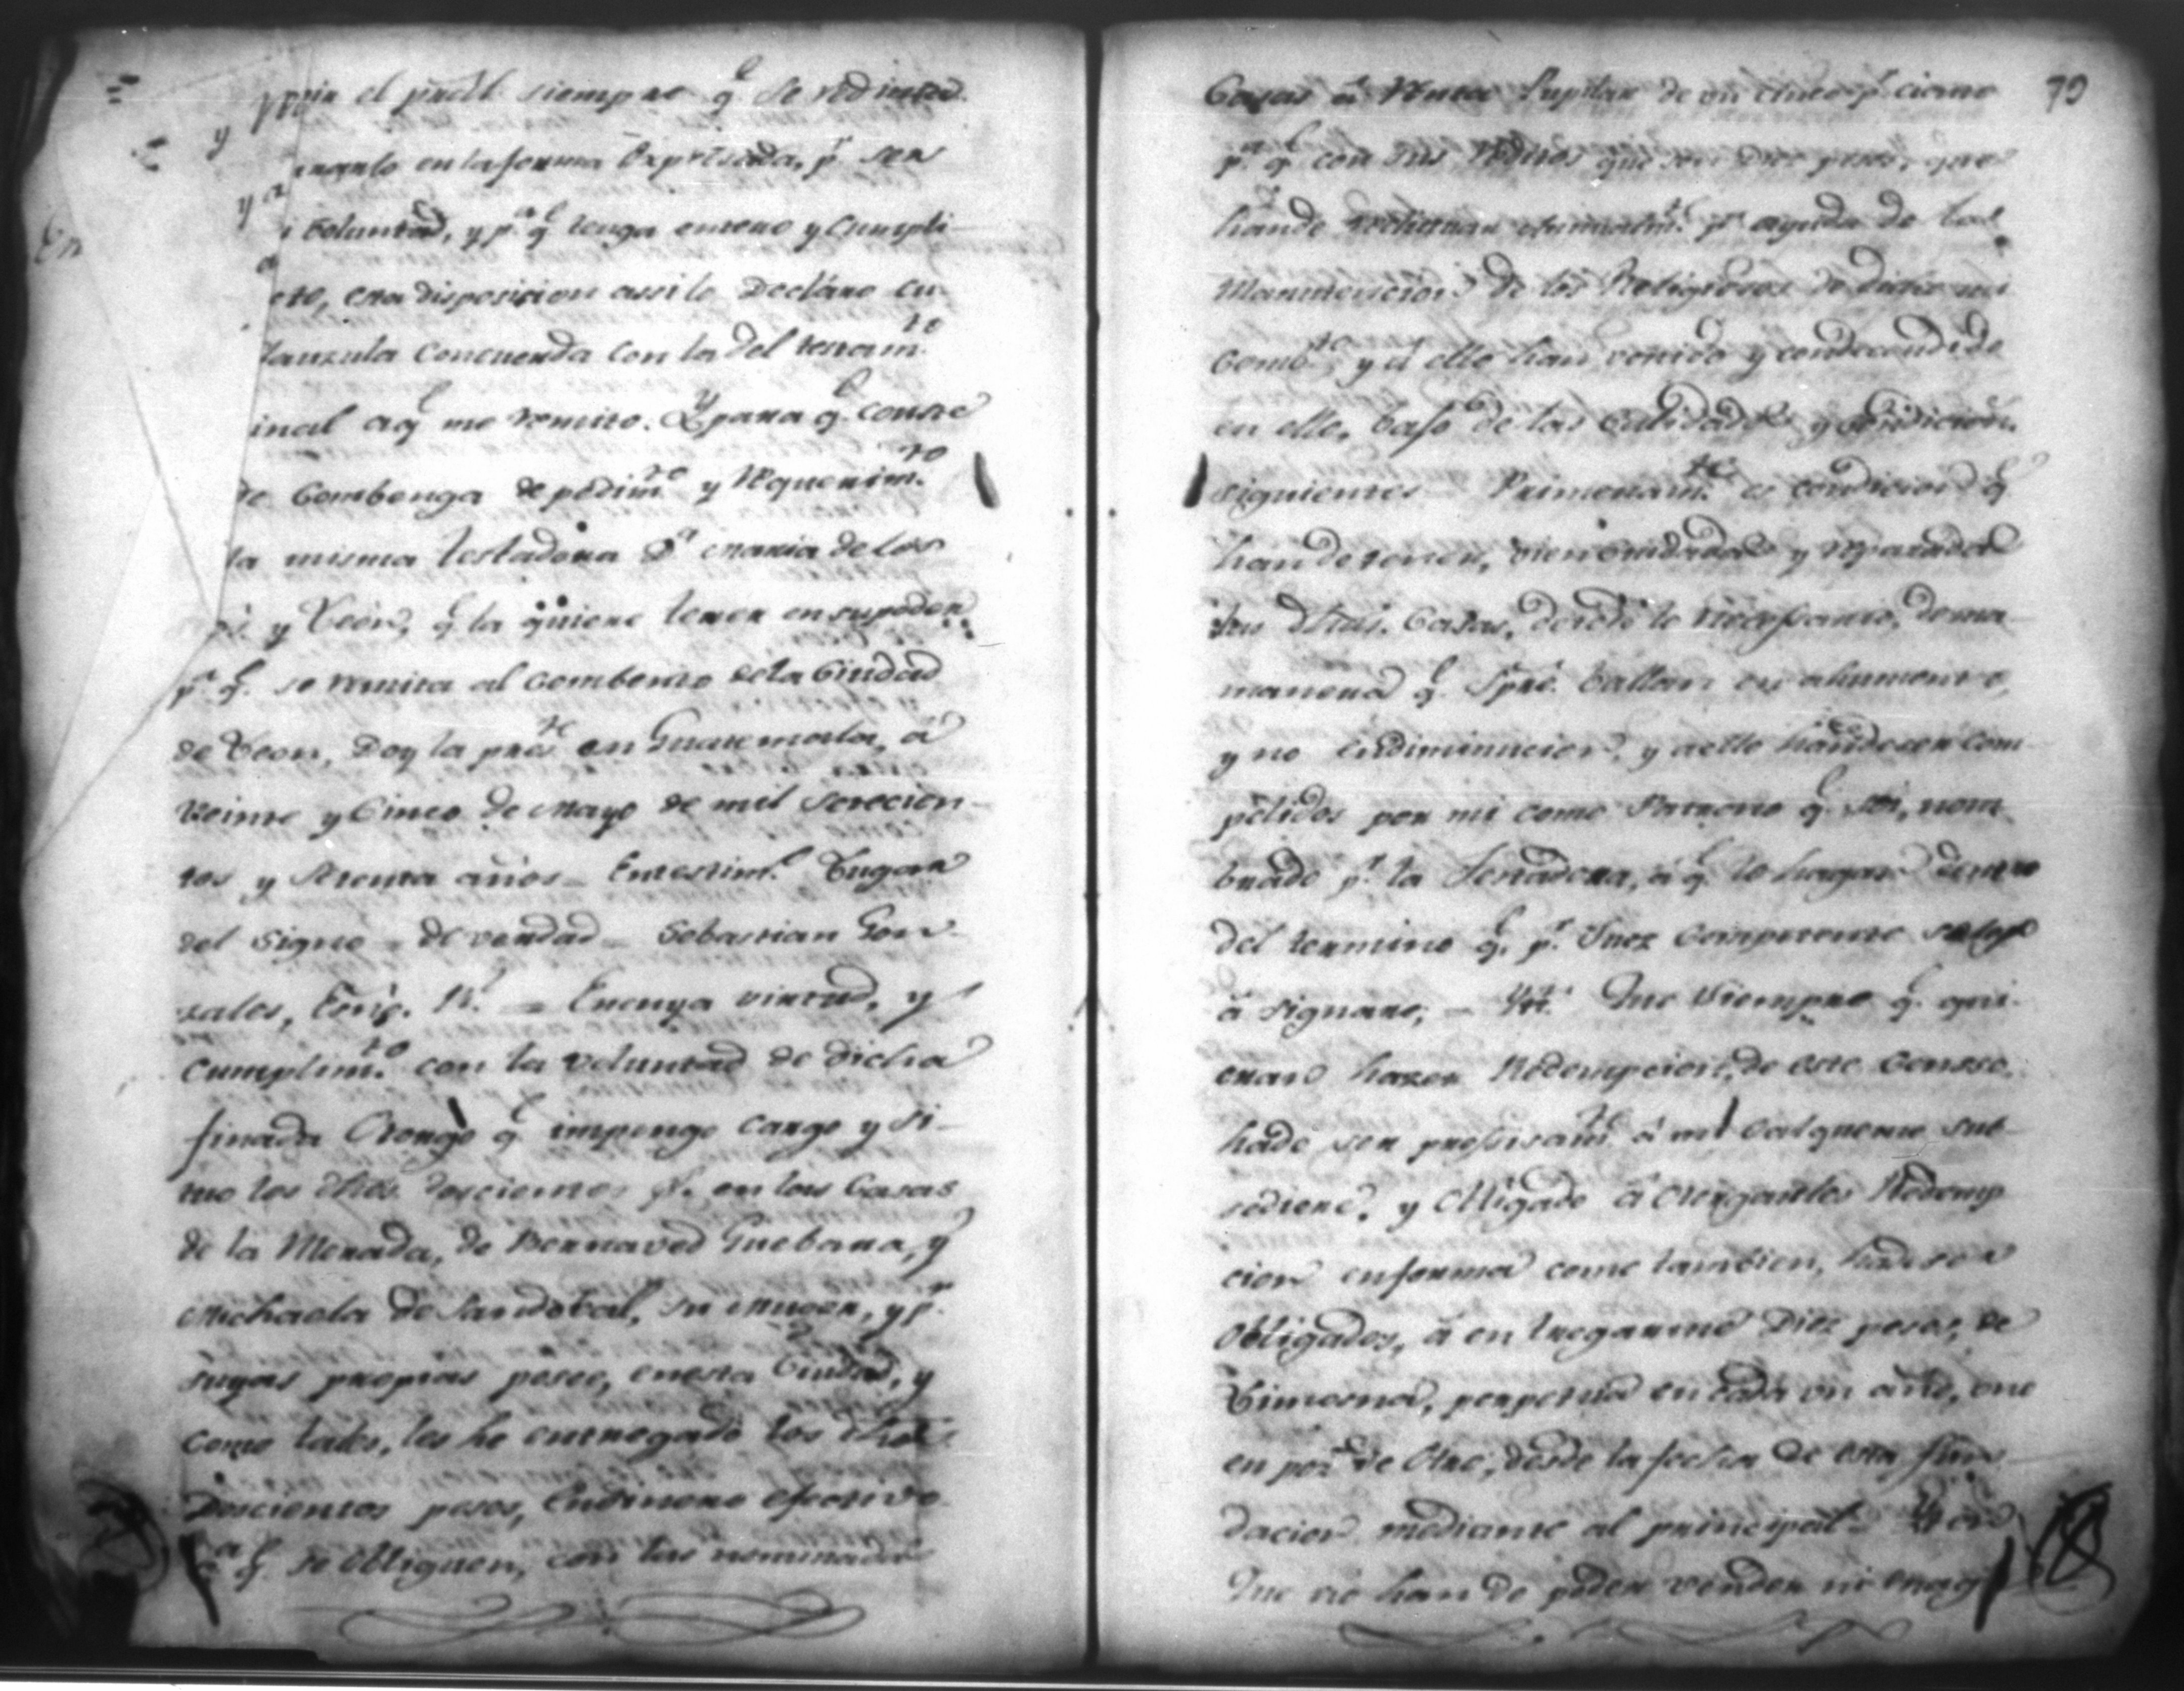 el pral. siempre q.e se redima
narlo en la forma Expresada, p.r ser
i boluntad, y p.a q.e tenga entero y Cumpli
cto, esta disposicion assi lo Declaro cu
lauzula Concuerda con la del testam.to
inal a q.e me remito. Y para q.e conste
te Combenga de pedim.to y Requerim.to
la misma testadora D.a Maria de los
y Leon, q.e la quiere tener en su poder
p.a q.e se remita al Combento de la Ciudad
de Leon, Doy la pres.te en Guatemala, á
veinte y Cinco de Mayo de mil setecien-
tos y setenta años = En testim.o Lugar
del Signo = de verdad = Sebastian Gon
zales, Escrib. R.l = En cuya virtud, y
Cumplim.to con la voluntad de dicha
finada Otorgo q.e impongo cargo y si-
tuo los dhos. doscientos p.s en las Casas
de la Morada, de Bernaved Guebara, y
Michaela de Sandobal, su Muger, y p.r
suyas propias posee, en esta Ciudad, y
como tales, les he entregado los dhos.
Doscientos pesos, En dinero efectivo
p.a q.e se obliguen, con las nominadas
79
Casas á
p.a q.e con sus reditos que son diez pesos, que
han de anualm.te p.a ayuda de la
Manutencion de los Religiosos de dicho mi
Comb.to y á ello han venido y condecendido
en ello, bajo de las Calidades y condicion.s
siguientes = Primeram.te es condicion q.e
han de tener, bien cuidadas y reparadas
las dhas. Casas, de todo lo necessario, de ma
manera q.e spre. ballan en ahumento,
y no en diminucion, y a ello han de ser com
pelidos por mi como Patrono q.e soi, nom
brado p.r la Testadora, á q.e lo hagan dentro
del termino q.e p.r Juez Competente se les
á signare, = Yt. Que siempre q.e qui
eran hazer Redempcion, de este Censso,
ha de ser pressisam.te á mi ó al que me sub
sediere, y obligado á otorgarles Redemp
cion en forma como tambien, han de ser
obligados, á en tregarme Diez pesos, de
Limosna, perpetua en cada un año, uno
en pos de Otro, desde la fecha de esta fun
dacion mediante al principal = Yten
Que no han de poder vender ni enag